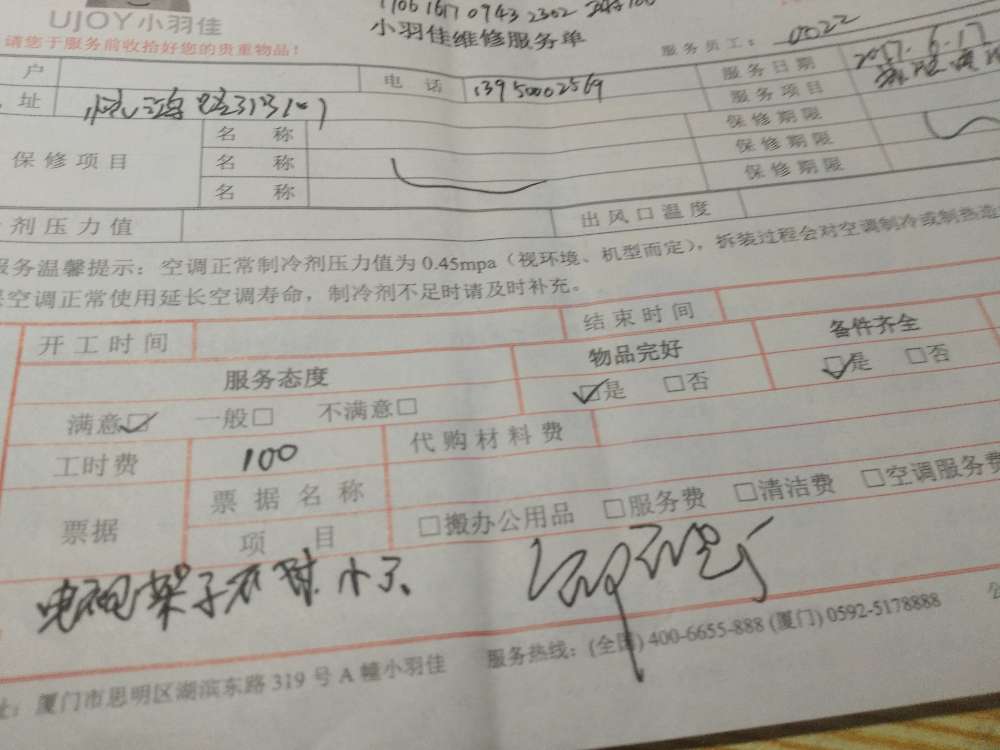 UJOY小羽佳
请您于服务前收拾好您的贵重物品！
小羽佳维修服务单
服务员工： 0022
户 电话 13950002569 服务日期 2017.6.17
址 服务项目
保修项目 名称 保修期限
名称 保修期限
名称 保修期限
剂压力值 出风口温度
服务温馨提示：空调正常制冷剂压力值为0.45mpa（视环境、机型而定），拆装过程会对空调制冷或制热造
空调正常使用延长空调寿命，制冷剂不足时请及时补充。
开工时间 结束时间
服务态度 物品完好 备件齐全
满意☑ 一般□ 不满意□ ☑是 □否 ☑是 □否
工时费 100 代购材料费
票据 票据名称
项目 □搬办公用品 □服务费 □清洁费 □空调服务费
电视架子不对.小了.
址：厦门市思明区湖滨东路319号A幢小羽佳 服务热线：(全国) 400-6655-888 (厦门) 0592-5178888 公